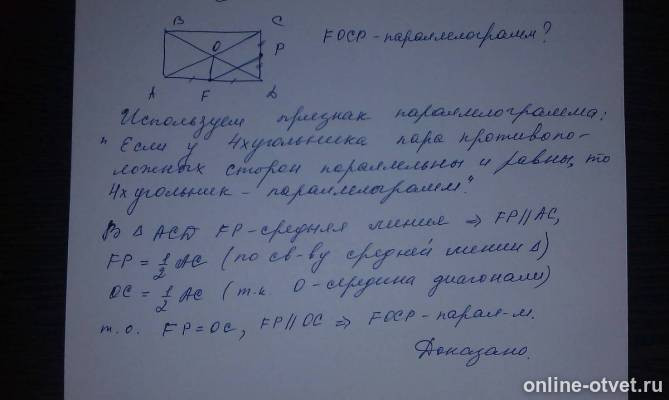 B C
FOCP - параллелограмм?
O
P
A F D
Используем признак параллелограмма:
"Если у 4хугольника пара противопо-
ложных сторон параллельны и равны, то
4хугольник - параллелограмм."
В Δ ACD FP - средняя линия ⇒ FP || AC,
FP = 1/2 AC (по св-ву средней линии Δ)
OC = 1/2 AC (т.к. O - середина диагонали)
т.о. FP = OC, FP || OC ⇒ FOCP - парал-м.
Доказано.
online-otvet.ru